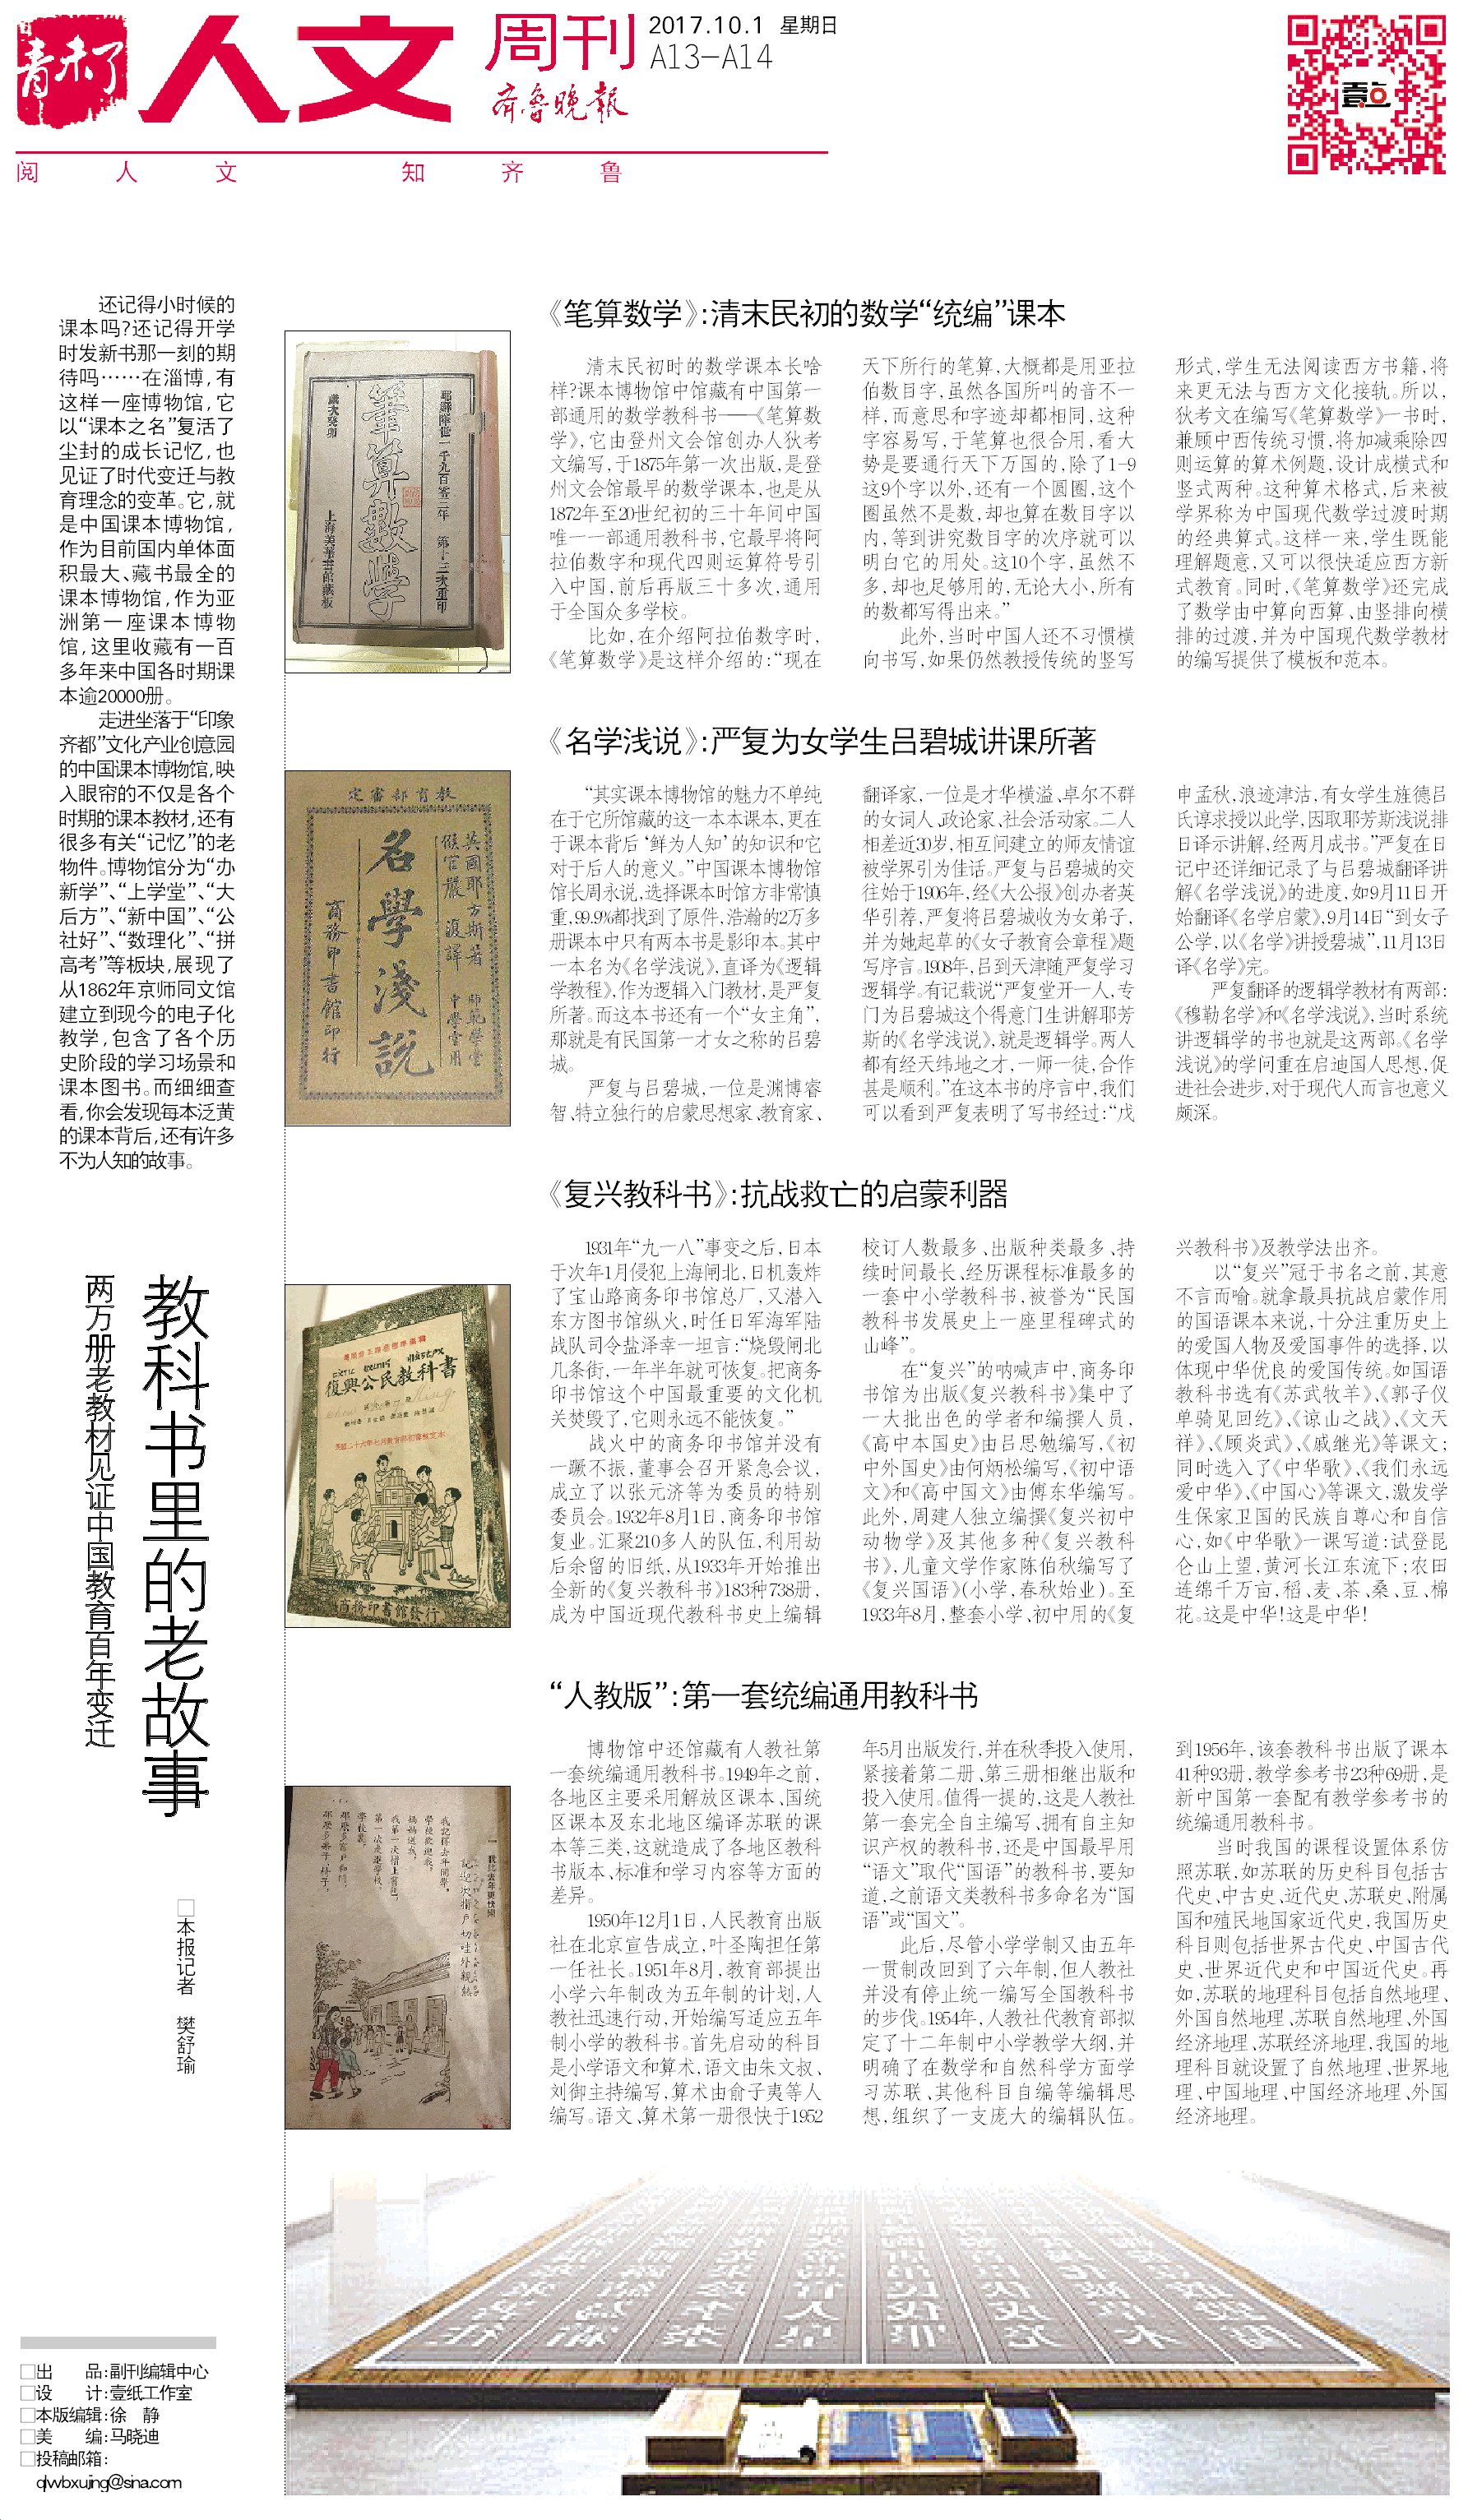 青未了
人文
周刊
齐鲁晚报
2017.10.1 星期日
A13-A14
壹点
阅人文 知齐鲁
还记得小时候的
课本吗?还记得开学
时发新书那一刻的期
待吗……在淄博,有
这样一座博物馆,它
以“课本之名”复活了
尘封的成长记忆,也
见证了时代变迁与教
育理念的变革。它,就
是中国课本博物馆,
作为目前国内单体面
积最大、藏书最全的
课本博物馆,作为亚
洲第一座课本博物
馆,这里收藏有一百
多年来中国各时期课
本逾20000册。
走进坐落于“印象
齐都”文化产业创意园
的中国课本博物馆,映
入眼帘的不仅是各个
时期的课本教材,还有
很多有关“记忆”的老
物件。博物馆分为“办
新学”、“上学堂”、“大
后方”、“新中国”、“公
社好”、“数理化”、“拼
高考”等板块,展现了
从1862年京师同文馆
建立到现今的电子化
教学,包含了各个历
史阶段的学习场景和
课本图书。而细细查
看,你会发现每本泛黄
的课本背后,还有许多
不为人知的故事。
教科书里的老故事
两万册老教材见证中国教育百年变迁
□本报记者 樊舒瑜
《笔算数学》:清末民初的数学“统编”课本
耶穌降世一千九百零三年 第十三次重印
筆算數學
歲次癸卯 上海美華書館藏板
清末民初时的数学课本长啥
样?课本博物馆中馆藏有中国第一
部通用的数学教科书——《笔算数
学》,它由登州文会馆创办人狄考
文编写,于1875年第一次出版,是登
州文会馆最早的数学课本,也是从
1872年至20世纪初的三十年间中国
唯一一部通用教科书,它最早将阿
拉伯数字和现代四则运算符号引
入中国,前后再版三十多次,通用
于全国众多学校。
比如,在介绍阿拉伯数字时,
《笔算数学》是这样介绍的:“现在
天下所行的笔算,大概都是用亚拉
伯数目字,虽然各国所叫的音不一
样,而意思和字迹却都相同,这种
字容易写,于笔算也很合用,看大
势是要通行天下万国的,除了1-9
这9个字以外,还有一个圆圈,这个
圈虽然不是数,却也算在数目字以
内,等到讲究数目字的次序就可以
明白它的用处。这10个字,虽然不
多,却也足够用的,无论大小,所有
的数都写得出来。”
此外,当时中国人还不习惯横
向书写,如果仍然教授传统的竖写
形式,学生无法阅读西方书籍,将
来更无法与西方文化接轨。所以,
狄考文在编写《笔算数学》一书时,
兼顾中西传统习惯,将加减乘除四
则运算的算术例题,设计成横式和
竖式两种。这种算术格式,后来被
学界称为中国现代数学过渡时期
的经典算式。这样一来,学生既能
理解题意,又可以很快适应西方新
式教育。同时,《笔算数学》还完成
了数学由中算向西算、由竖排向横
排的过渡,并为中国现代数学教材
的编写提供了模板和范本。
《名学浅说》:严复为女学生吕碧城讲课所著
教育部審定
英國耶方斯著 師範學堂
候官嚴復譯 中學堂用
名學淺說
商務印書館印行
“其实课本博物馆的魅力不单纯
在于它所馆藏的这一本本课本,更在
于课本背后‘鲜为人知’的知识和它
对于后人的意义。”中国课本博物馆
馆长周永说,选择课本时馆方非常慎
重,99.9%都找到了原件,浩瀚的2万多
册课本中只有两本书是影印本。其中
一本名为《名学浅说》,直译为《逻辑
学教程》,作为逻辑入门教材,是严复
所著。而这本书还有一个“女主角”,
那就是有民国第一才女之称的吕碧
城。
严复与吕碧城,一位是渊博睿
智、特立独行的启蒙思想家、教育家、
翻译家,一位是才华横溢、卓尔不群
的女词人、政论家、社会活动家。二人
相差近30岁,相互间建立的师友情谊
被学界引为佳话。严复与吕碧城的交
往始于1906年,经《大公报》创办者英
华引荐,严复将吕碧城收为女弟子,
并为她起草的《女子教育会章程》题
写序言。1908年,吕到天津随严复学习
逻辑学。有记载说“严复堂开一人,专
门为吕碧城这个得意门生讲解耶芳
斯的《名学浅说》,就是逻辑学。两人
都有经天纬地之才,一师一徒,合作
甚是顺利。”在这本书的序言中,我们
可以看到严复表明了写书经过:“戊
申孟秋,浪迹津沽,有女学生旌德吕
氏谆求授以此学,因取耶芳斯浅说排
日译示讲解,经两月成书。”严复在日
记中还详细记录了与吕碧城翻译讲
解《名学浅说》的进度,如9月11日开
始翻译《名学启蒙》,9月14日“到女子
公学,以《名学》讲授碧城”,11月13日
译《名学》完。
严复翻译的逻辑学教材有两部:
《穆勒名学》和《名学浅说》,当时系统
讲逻辑学的书也就是这两部。《名学
浅说》的学问重在启迪国人思想,促
进社会进步,对于现代人而言也意义
颇深。
《复兴教科书》:抗战救亡的启蒙利器
復興公民教科書
商務印書館發行
1931年“九一八”事变之后,日本
于次年1月侵犯上海闸北,日机轰炸
了宝山路商务印书馆总厂,又潜入
东方图书馆纵火,时任日军海军陆
战队司令盐泽幸一坦言:“烧毁闸北
几条街,一年半年就可恢复。把商务
印书馆这个中国最重要的文化机
关焚毁了,它则永远不能恢复。”
战火中的商务印书馆并没有
一蹶不振,董事会召开紧急会议,
成立了以张元济等为委员的特别
委员会。1932年8月1日,商务印书馆
复业。汇聚210多人的队伍,利用劫
后余留的旧纸,从1933年开始推出
全新的《复兴教科书》183种738册,
成为中国近现代教科书史上编辑
校订人数最多、出版种类最多、持
续时间最长、经历课程标准最多的
一套中小学教科书,被誉为“民国
教科书发展史上一座里程碑式的
山峰”。
在“复兴”的呐喊声中,商务印
书馆为出版《复兴教科书》集中了
一大批出色的学者和编撰人员,
《高中本国史》由吕思勉编写,《初
中外国史》由何炳松编写,《初中语
文》和《高中国文》由傅东华编写。
此外,周建人独立编撰《复兴初中
动物学》及其他多种《复兴教科
书》,儿童文学作家陈伯秋编写了
《复兴国语》(小学,春秋始业)。至
1933年8月,整套小学、初中用的《复
兴教科书》及教学法出齐。
以“复兴”冠于书名之前,其意
不言而喻。就拿最具抗战启蒙作用
的国语课本来说,十分注重历史上
的爱国人物及爱国事件的选择,以
体现中华优良的爱国传统。如国语
教科书选有《苏武牧羊》、《郭子仪
单骑见回纥》、《谅山之战》、《文天
祥》、《顾炎武》、《戚继光》等课文;
同时选入了《中华歌》、《我们永远
爱中华》、《中国心》等课文,激发学
生保家卫国的民族自尊心和自信
心,如《中华歌》一课写道:试登昆
仑山上望,黄河长江东流下;农田
连绵千万亩,稻、麦、茶、桑、豆、棉
花。这是中华!这是中华!
“人教版”:第一套统编通用教科书
博物馆中还馆藏有人教社第
一套统编通用教科书。1949年之前,
各地区主要采用解放区课本、国统
区课本及东北地区编译苏联的课
本等三类,这就造成了各地区教科
书版本、标准和学习内容等方面的
差异。
1950年12月1日,人民教育出版
社在北京宣告成立,叶圣陶担任第
一任社长。1951年8月,教育部提出
小学六年制改为五年制的计划,人
教社迅速行动,开始编写适应五年
制小学的教科书。首先启动的科目
是小学语文和算术,语文由朱文叔、
刘御主持编写,算术由俞子夷等人
编写。语文、算术第一册很快于1952
年5月出版发行,并在秋季投入使用,
紧接着第二册,第三册相继出版和
投入使用。值得一提的,这是人教社
第一套完全自主编写、拥有自主知
识产权的教科书,还是中国最早用
“语文”取代“国语”的教科书,要知
道,之前语文类教科书多命名为“国
语”或“国文”。
此后,尽管小学学制又由五年
一贯制改回到了六年制,但人教社
并没有停止统一编写全国教科书
的步伐。1954年,人教社代教育部拟
定了十二年制中小学教学大纲,并
明确了在数学和自然科学方面学
习苏联、其他科目自编等编辑思
想,组织了一支庞大的编辑队伍。
到1956年,该套教科书出版了课本
41种93册,教学参考书23种69册,是
新中国第一套配有教学参考书的
统编通用教科书。
当时我国的课程设置体系仿
照苏联,如苏联的历史科目包括古
代史、中古史、近代史、苏联史、附属
国和殖民地国家近代史,我国历史
科目则包括世界古代史、中国古代
史、世界近代史和中国近代史。再
如,苏联的地理科目包括自然地理、
外国自然地理、苏联自然地理、外国
经济地理、苏联经济地理,我国的地
理科目就设置了自然地理、世界地
理、中国地理、中国经济地理、外国
经济地理。
□出 品:副刊编辑中心
□设 计:壹纸工作室
□本版编辑:徐 静
□美 编:马晓迪
□投稿邮箱:
qlwbxujing@sina.com